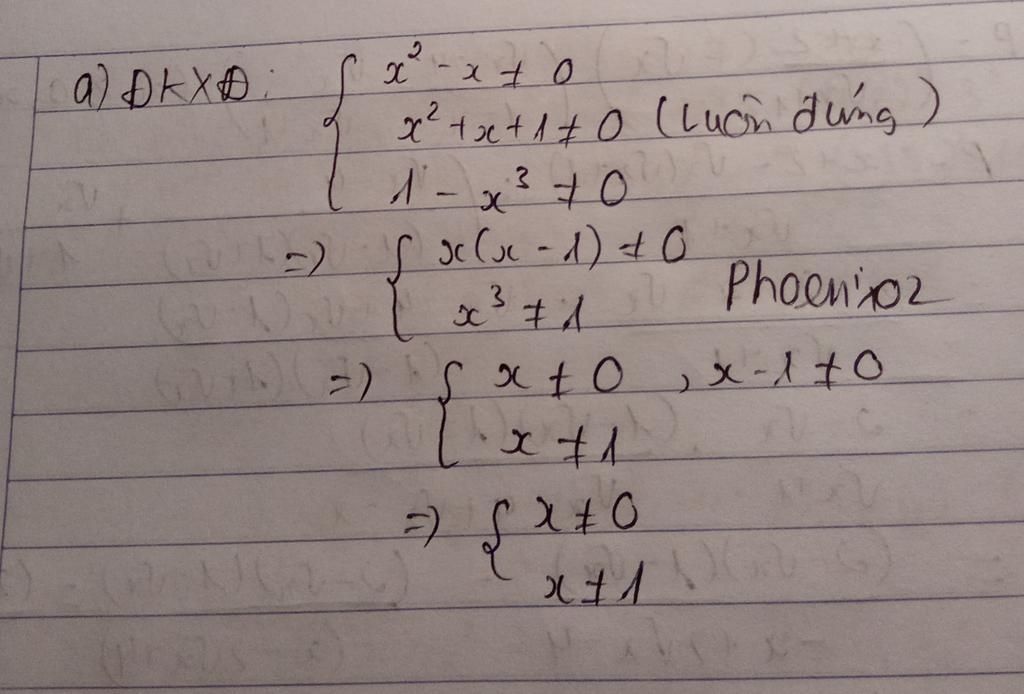 a) ĐKXĐ: { x² - x ≠ 0
x² + x + 1 ≠ 0 (luôn đúng)
1 - x³ ≠ 0
=> { x(x - 1) ≠ 0
x³ ≠ 1
Phoenix02
=> { x ≠ 0 , x - 1 ≠ 0
x ≠ 1
=> { x ≠ 0
x ≠ 1